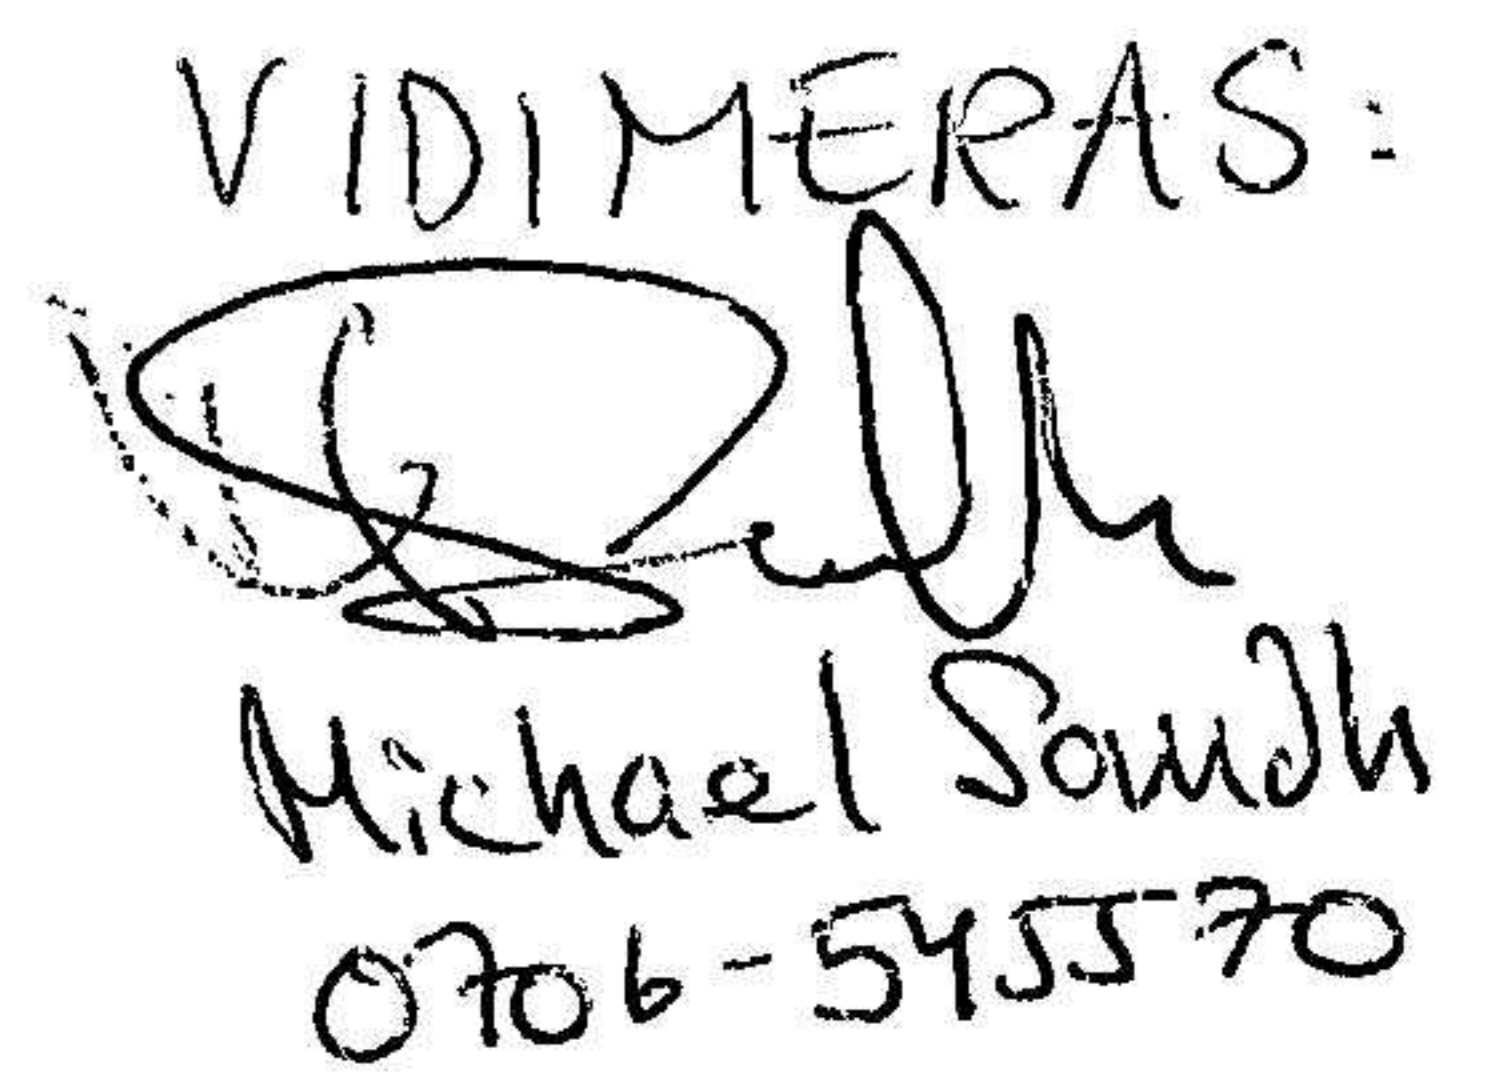 VIDIMERAS:
Michael
0706-545570